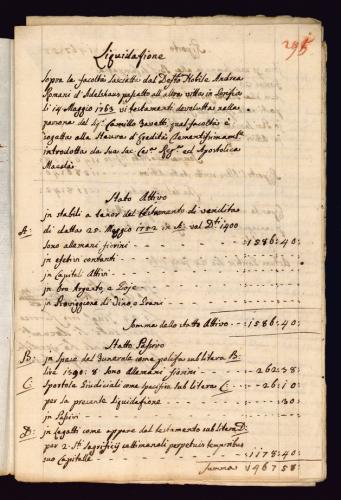 295
Liquidasione
sopra la facoltà lasciata dal Defto Nobile Andrea
Romani d'Adelshaus passato all'altra vitta in Gorizia
li 14 Maggio 1763 vi testamenti devoluta nella
persona del Sig. Camillo Zavetti, qual facoltà è
sogatta alla Steura d'Eredità Clementissimamte
introdotta da Sua Sac. Ces. Reg. ed Apostolica
Maestà
Stato Attivo
A: jn stabili a tenor del testamento di vendita
di datta 25 Maggio 1752 in A: val Dti 1400
sono allemani fiorini 1586:40:
jn efetivi contanti
jn Capitali Attivi
jn Oro Argento e Goje
jn Proviggione di Vino e Grani
Somma dello stato Attivo 1586:40:
Statto Passivo
B: jn Spese del Funerale come polissa sub litera B:
lire 1390:8 Sono Allemani fiorini 262:38
C: Sportole Giudiciali come specifica sub litera C: 26:10
per la presente Liquidasione :30:
jn Passivi
D: jn Legatti come appare dal testamento sub litera D:
per 2 Sti Sagrificij settimanali perpetuis temporibus
suo Capitalle 1178:40:
Summa 1467:58: